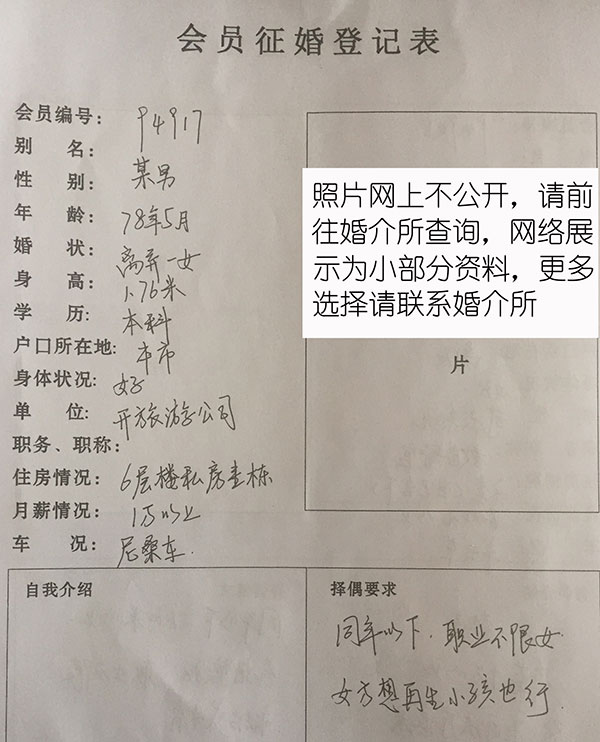 会员征婚登记表
会员编号: 94917
别 名:
性 别: 某男
年 龄: 78年5月
婚 状: 离异一女
身 高: 1.76米
学 历: 本科
户口所在地: 本市
身体状况: 好
单 位: 开旅游公司
职务、职称:
住房情况: 6层楼私房壹栋
月薪情况: 1万以上
车 况: 尼桑车.
照片网上不公开，请前
往婚介所查询，网络展
示为小部分资料，更多
选择请联系婚介所
片
自我介绍
择偶要求
同年以下. 职业不限女
女方想再生小孩也行